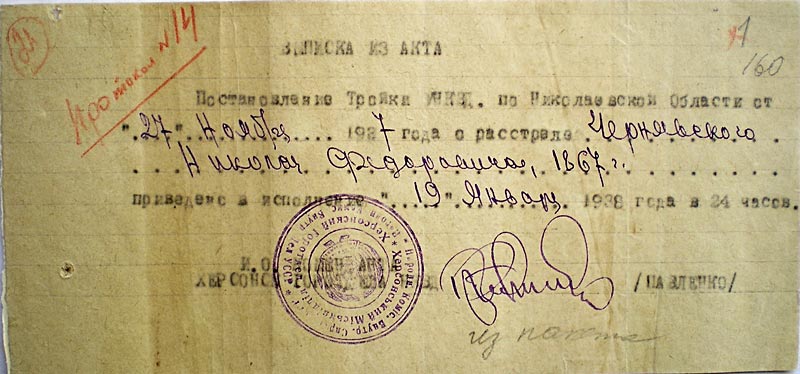 21
Протокол N 14
1
160
ВЫПИСКА ИЗ АКТА
Постановление Тройки УНКВД. по Николаевской Области от
"27" Ноября 1937 года о расстреле Чернявского
Николая Федоровича, 1867 г.
приведено в исполнение "19" Января 1938 года в 24 часов.
И.О.
ХЕРСОНСК /ПАВЛЕНКО/
Херсонський Міський
Херсонский Городск